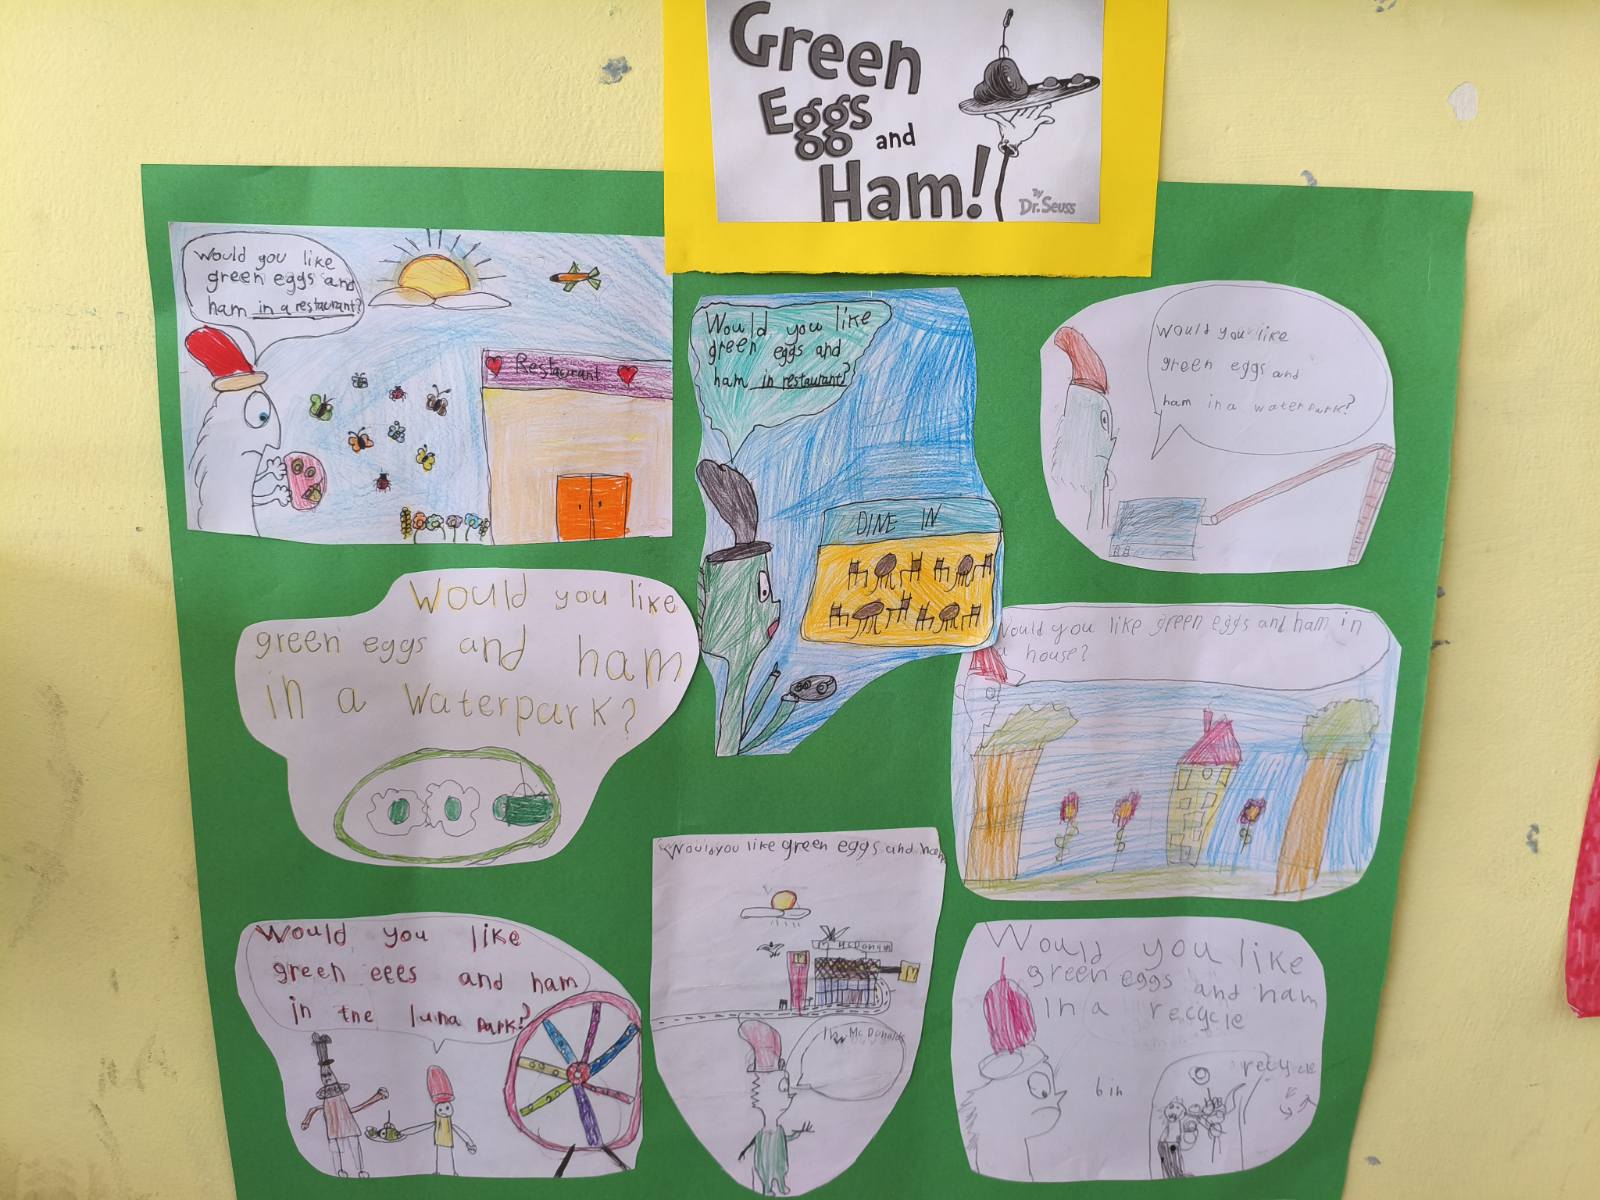 Green
Eggs and
Ham!
by
Dr. Seuss
Would you like
green eggs and
ham in a restaurant?
Restaurant
Would you like
green eggs and
ham in restaurant?
DINE IN
Would you like
green eggs and
ham in a waterpark?
Would you like
green eggs and ham
in a waterpark?
Would you like green eggs and ham in
a house?
Would you like
green eees and ham
in the luna park?
Would you like green eggs and ham
McDonald
M
M
In McDonalds
Would you like
green eggs and ham
in a recycle
bin
recycle